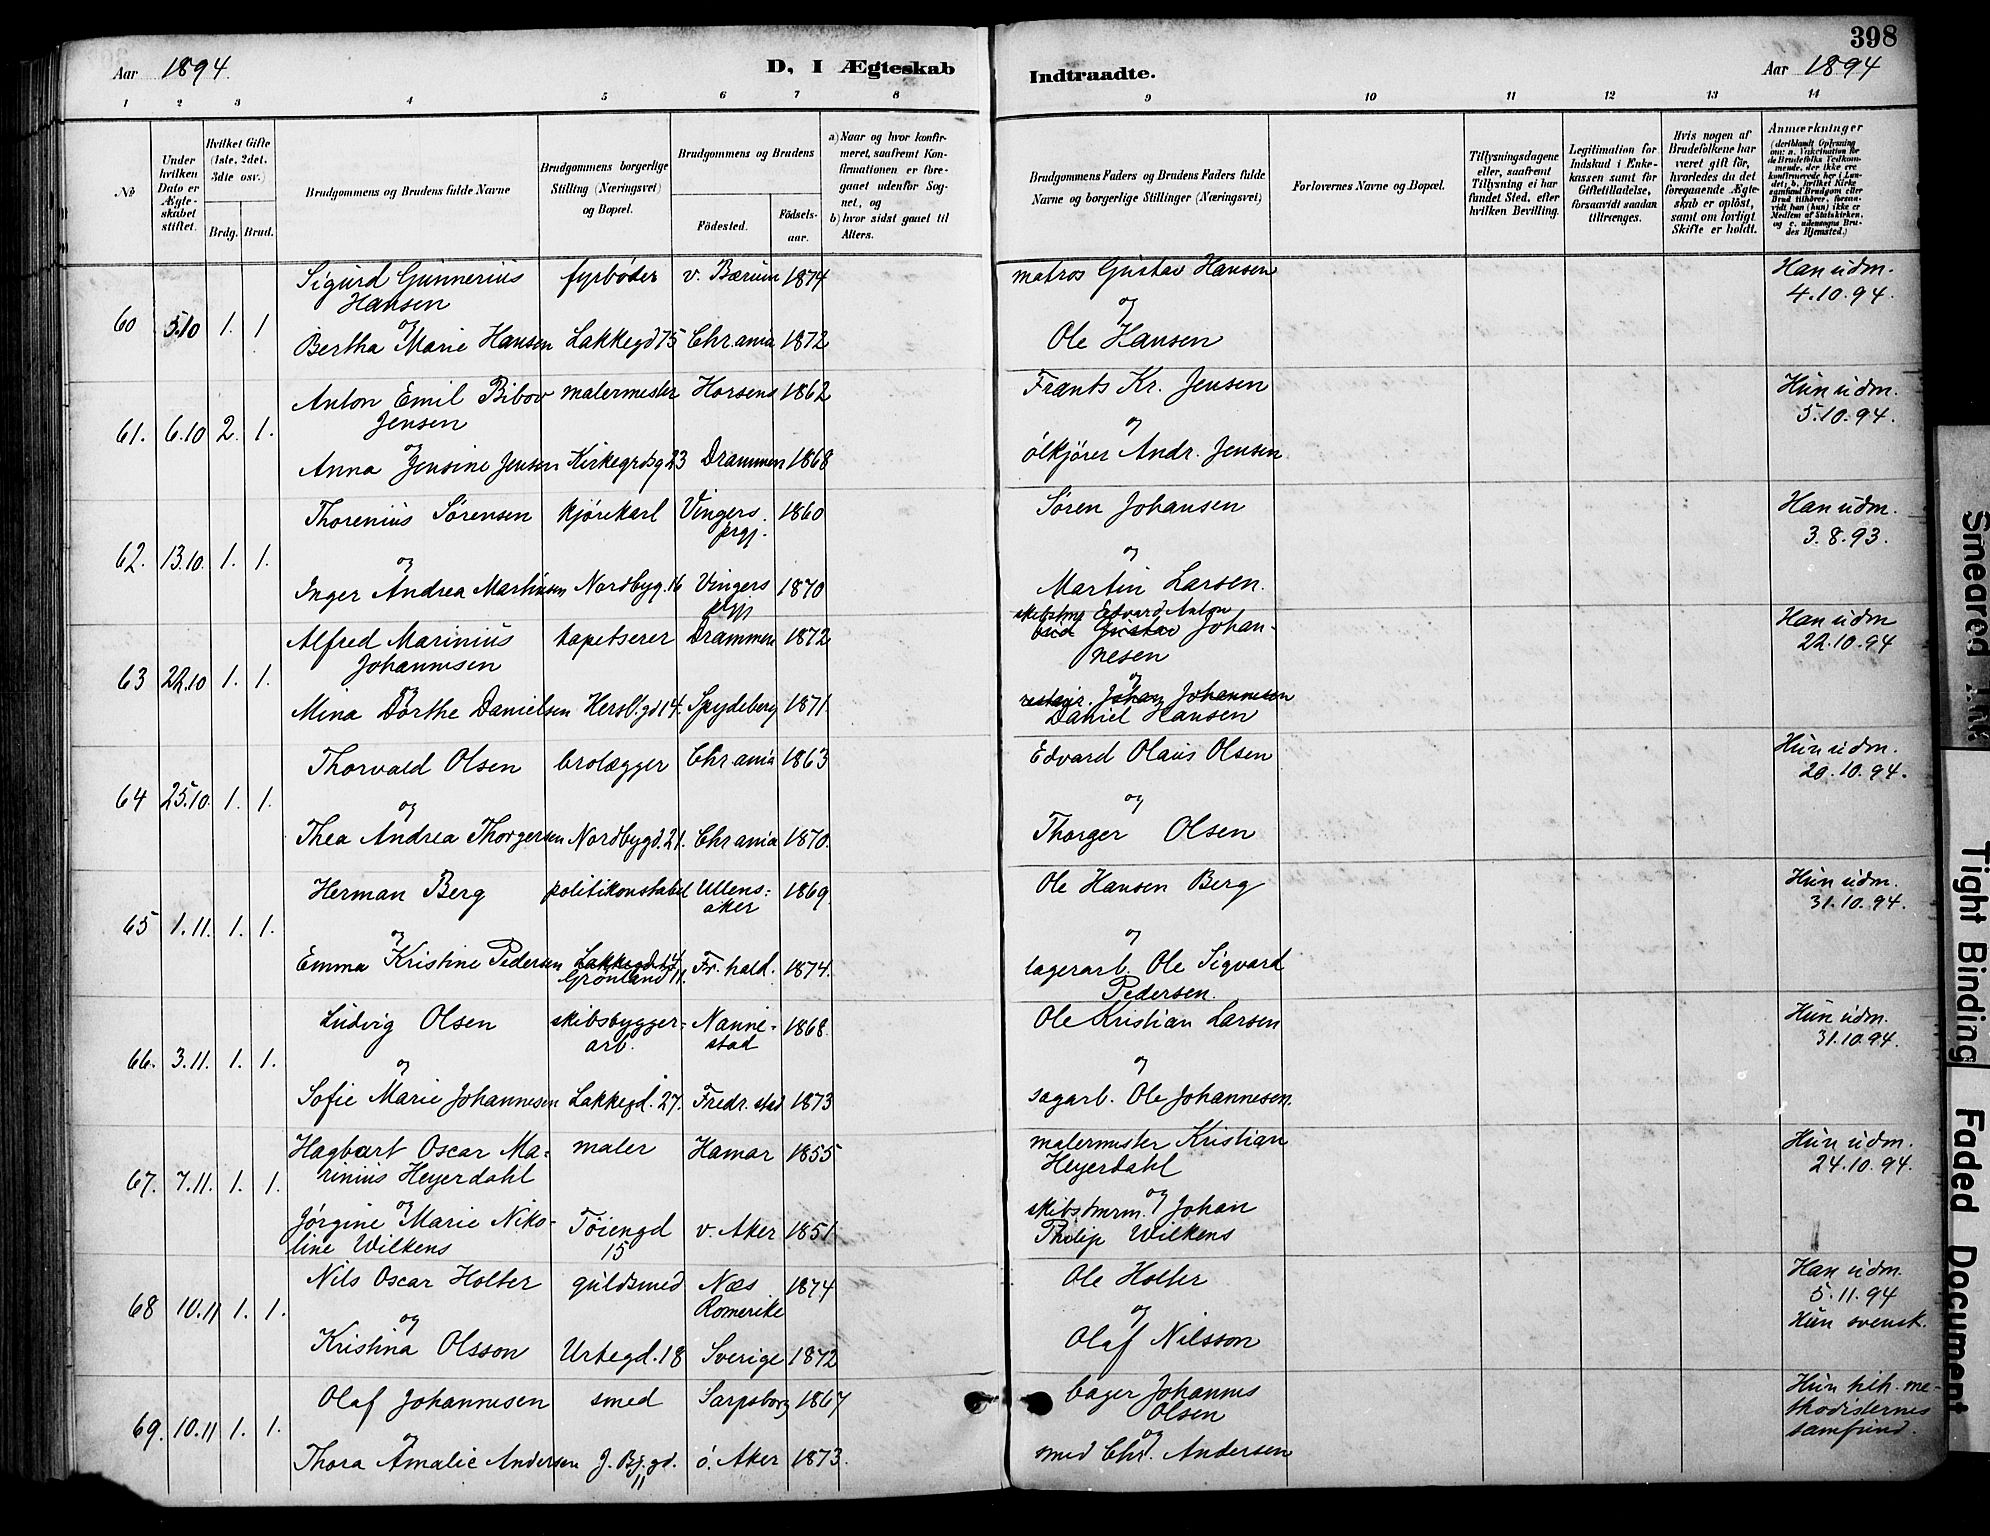 398
Aar 1894. D, I Ægteskab Indtraadte. Aar 1894
1 2 3 4 5 6 7 8 9 10 11 12 13 14
No
Under hvilken Dato er Ægteskabet stiftet.
Hvilket Gifte (1ste, 2det, 3die osv.)
Brdg. Brud.
Brudgommens og Brudens fulde Navne
Brudgommens borgerlige Stilling (Næringsvei) og Bopæl.
Brudgommens og Brudens
Fødested. Fødselsaar.
a) Naar og hvor konfirmeret, saafremt Konfirmationen er foregaaet udenfor Sognet, og
b) hvor sidst gaaet til Alters.
Brudgommens Faders og Brudens Faders fulde Navne og borgerlige Stillinger (Næringsvei)
Forlovernes Navne og Bopæl.
Tillysningsdagene eller, saafremt Tillysning ei har fundet Sted, efter hvilken Bevilling.
Legitimation for Indskud i Enkekassen samt for Giftetilladelse, forsaavidt saadan tiltrænges.
Hvis nogen af Brudefolkene har været gift før, hvorledes da det foregaaende Ægteskab er opløst, samt om lovligt Skifte er holdt.
Anmærkninger (deriblandt Oplysning om: a. Vakcination for de Brudefolks Vedkommende, der ikke ere konfirmerede her i Landet; b. hvilket Kirkesamfund Brudgom eller Brud tilhører, forsaavidt han (hun) ikke er Medlem af Statskirken, og c. udensogns Brudes Hjemsted.)
Sigurd Gunnerius fyrbøder v. Bærum 1874 matros Gustav Hansen Han udm.
Hansen og 4.10.94.
60 5.10 1. 1
og
Bertha Marie Hansen Lakkegd 75 Chr.ania 1872 Ole Hansen
Anton Emil Bibow malermester Horsens 1862 Frants Kr. Jensen Hun udm.
Jensen og 5.10.94.
61. 6.10 2. 1.
og
Anna Jensine Jensen Kirkegrdsg 23 Drammen 1868 ølkjører Andr. Jensen
Thorenius Sørensen kjørekarl Vingers prgj. 1860 Søren Johansen Han udm.
3.8.93.
62. 13.10. 1. 1. og og
Inger Andrea Martinsen Nordbyg. 16 Vingers prgj 1870 Martin Larsen.
Alfred Marinius tapetserer Drammen 1872 skibstmr Edvard Anton Han udm
Johannesen bud Gustav Johannesen 22.10.94
63 22.10 1. 1.
og
Mina Dorthe Danielsen Hersl.gd 14. Spydeberg 1871. restaur. Johan Johannesen
Daniel Hansen
Thorvald Olsen brolægger Chr.ania 1863 Edvard Olaus Olsen Hun udm.
20.10.94.
64 25.10. 1. 1. og og
Thea Andrea Thorgersen Nordbygd. 21. Chr.ania 1870. Thorger Olsen
Herman Berg politikonstabel Ullensaker 1869 Ole Hansen Berg Hun udm.
31.10.94.
65 1.11. 1. 1. og og
Emma Kristine Pedersen Lakkegd 14 Fr. hald. 1874. lagerarb. Ole Sigvard
Grønland 11. Pedersen.
Ludvig Olsen skibsbygger- Nanne- 1868. Ole Kristian Larsen Hun udm.
arb. stad 31.10.94.
66. 3.11. 1. 1. og og
Sofie Marie Johannesen Lakkegd. 27. Fredr.stad 1873 sagarb. Ole Johannesen.
Hagbart Oscar Ma- maler Hamar 1855 malermester Kristian Hun udm.
rinius Heyerdahl Heyerdahl 24.10.94.
67. 7.11. 1. 1.
og og
Jörgine Marie Niko- Tøiengd v. Aker 1851 skibstmrm. Johan
line Wilkens 15 Philip Wilkens
Nils Oscar Holter guldsmed Næs 1874 Ole Holter Han udm.
Romerike 5.11.94
68 10.11 1. 1. og og Hun svensk.
Kristina Olsson Urtegd. 18 Sverige 1872 Olaf Nilsson
Olaf Johannesen smed Sarpsborg 1867 bager Johannes Hun tilh. me-
Olsen thodisternes
69. 10.11 1. 1. og og samfund.
Thora Amalie Andersen J. Bj. gd. 11 ö. Aker 1873. smed Chr. Andersen
Smeared Ink
Tight Binding
Faded Document